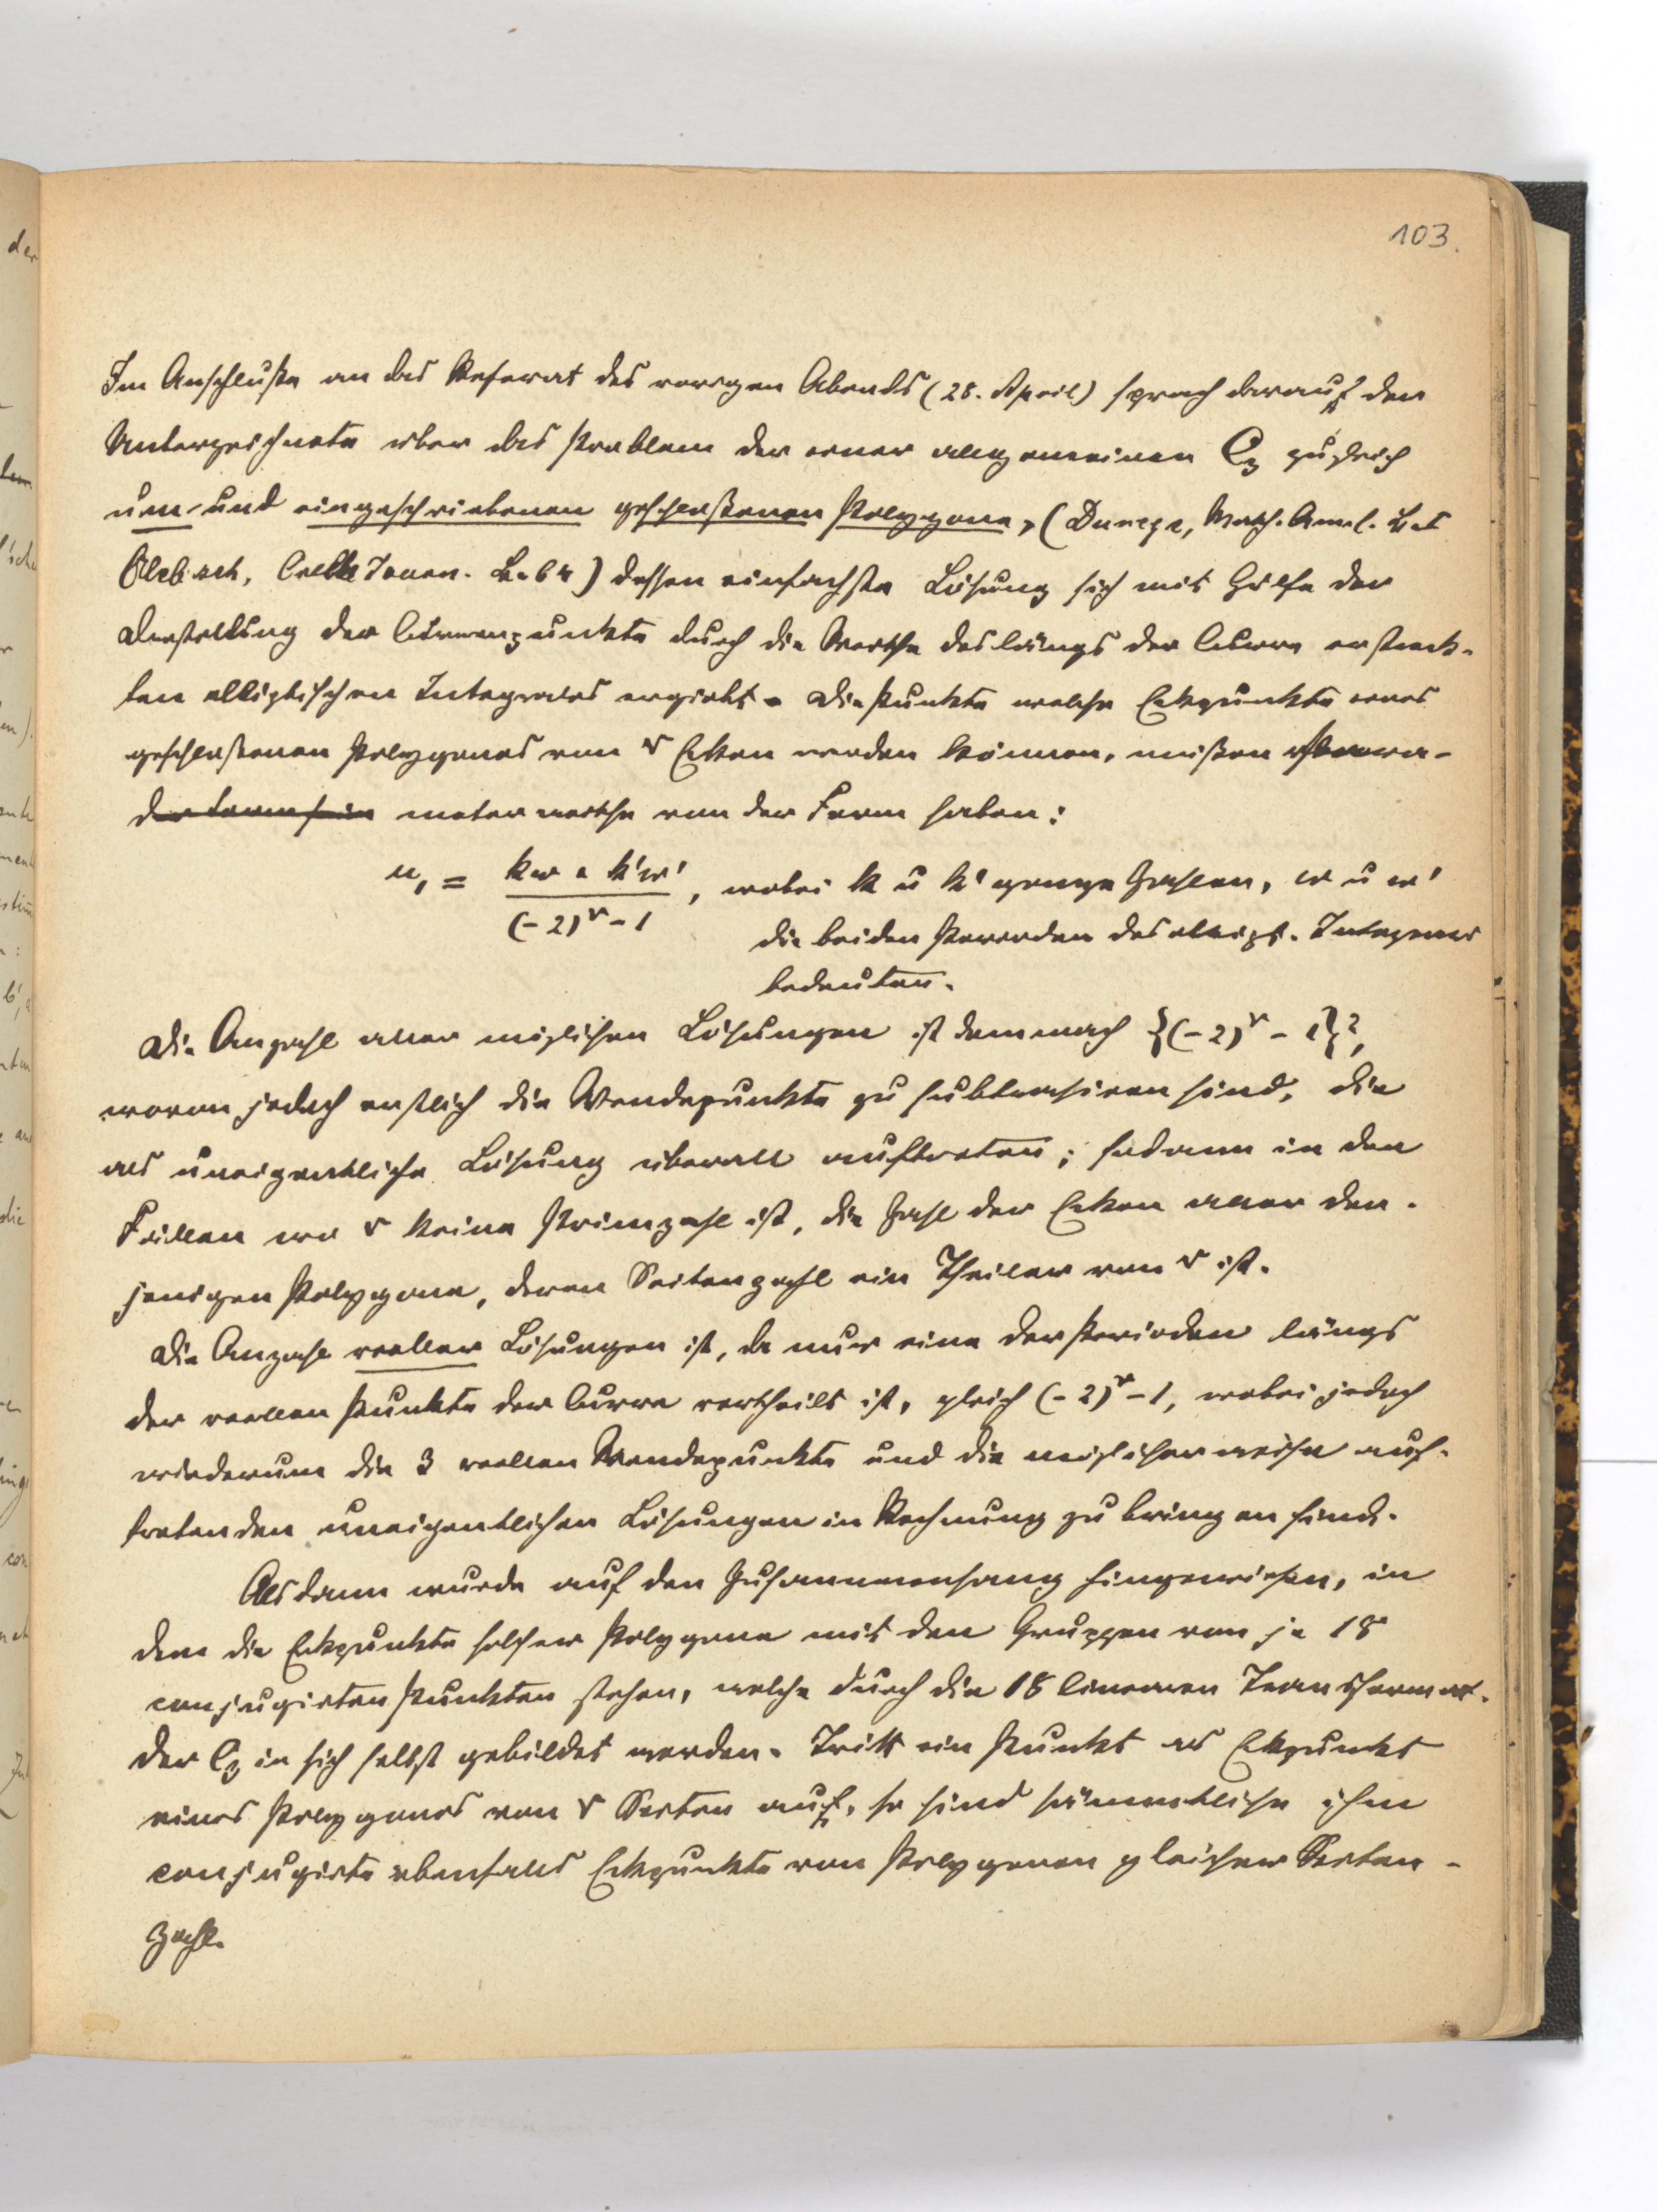 103.
Im Anschluße an das Referat des vorigen Abends (28. April) sprach darauf der
Unterzeichnete über das Problem der einer allgemeinen C₃ zugleich
um- und eingeschriebenen geschloßenen Polygone, (Durège, Math. Annal. Bd
Clebsch, Crelle Journ. B. 64) dessen einfachste Lösung sich mit Hülfe der
Darstellung der Curvenpunkte durch die Werthe des längs der Curve erstreck-
ten elliptischen Integrales ergiebt. Die Punkte welche Eckpunkte eines
geschloßenen Polygones von r Ecken werden können, müßen Para-
der Form sein meterwerthe von der Form haben:
u₁ = (kω + k'ω') / ((-2)^r - 1), wobei k u k' ganze Zahlen, ω u ω'
die beiden Perioden des ellipt. Integrals
bedeuten.
Die Anzahl aller möglichen Lösungen ist demnach {(-2)^r - 1}²,
wovon jedoch erstlich die Wendepunkte zu subtrahiren sind, die
als uneigentliche Lösung überall auftreten; sodann in den
Fällen wo r keine Primzahl ist, die Zahl der Ecken aller den-
jenigen Polygone, deren Seitenzahl ein Theiler von r ist.
Die Anzahl reeller Lösungen ist, da nur eine der Perioden längs
der reellen Punkte der Curve vertheilt ist, gleich (-2)^r - 1, wobei jedoch
wiederum die 3 reellen Wendepunkte und die möglicherweise auf-
tretenden uneigentlichen Lösungen in Rechnung zu bringen sind.
Alsdann wurde auf den Zusammenhang hingewiesen, in
dem die Eckpunkte solcher Polygone mit den Gruppen von je 18
conjugirten Punkten stehen, welche durch die 18 linearen Transformat.
der C₃ in sich selbst gebildet werden. Tritt ein Punkt als Eckpunkt
eines Polygones von r Seiten auf, so sind sämmtliche ihm
conjugirte ebenfalls Eckpunkte von Polygonen gleicher Seiten-
zahl.